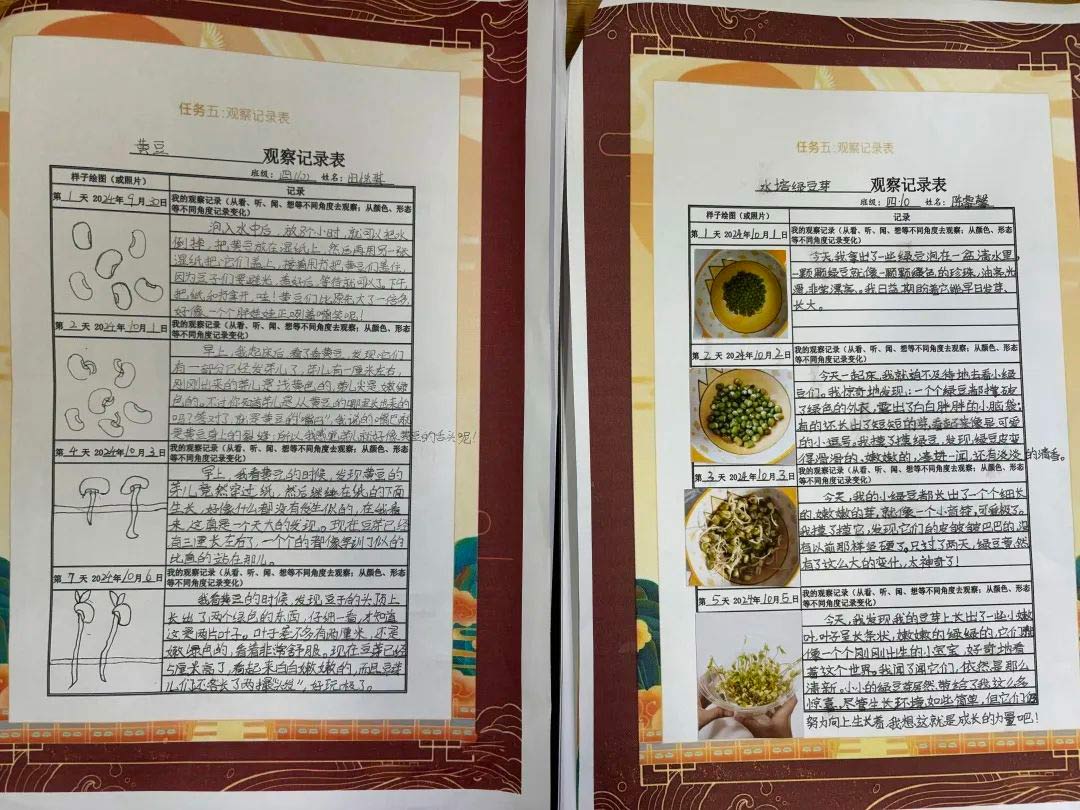 任务五:观察记录表
黄豆 观察记录表
班级: 四(10) 姓名:
样子绘图(或照片) 记录
第 1 天 2024年 9 月 30日
我的观察记录(从看、听、闻、想等不同角度去观察;从颜色、形态
等不同角度记录变化)
泡入水中后,放8个小时,就可以把水
倒掉,把黄豆放在湿纸上,然后再用另一张
湿纸把它们盖上,接着用书把黄豆们盖住,
因为豆子们要避光,盖好后,等待就可以了。下午
把纸和书拿开,哇!黄豆们比原先大了一倍多
好像一个个胖娃娃正咧着嘴笑呢!
第 2 天 2024年 10月 1日
我的观察记录(从看、听、闻、想等不同角度去观察;从颜色、形态
等不同角度记录变化)
早上,我起床后,看了看黄豆,发现它们
有一部分已经发芽儿了,芽儿有一厘米左右,
刚刚出来的芽儿是浅黄色的,芽儿尖是嫩绿
色的。不过你知道芽儿是从黄豆的哪里长出来的
吗?答对了,就是黄豆的“嘴巴”,我说的嘴巴就
是黄豆身上的裂缝,所以我感觉芽儿就好像黄豆的舌头呢!
第 4 天 2024年10月 3日
我的观察记录(从看、听、闻、想等不同角度去观察;从颜色、形态
等不同角度记录变化)
早上,我看黄豆的时候,发现黄豆的
芽儿竟然穿过纸,然后继续在纸的下面
生长,好像什么都没有发生似的,在我看
来,这真是一个天大的发现。现在豆芽已经
有三厘米左右了,一个个的都像军训了似的
比直的站在那儿。
第 7 天 2024年10月 6日
我的观察记录(从看、听、闻、想等不同角度去观察;从颜色、形态
等不同角度记录变化)
我看黄豆的时候,发现豆子的头顶上
长出了两个绿色的东西,仔细一看,才知道
这是两片叶子。叶子差不多有两厘米,还是
嫩绿色的,看着非常舒服。现在豆芽已经
5厘米高了,看起来白白嫩嫩的,而且豆芽
儿们还各长了两撮“头发”,好玩极了。
任务五:观察记录表
水培绿豆芽 观察记录表
班级: 四.10 姓名:
样子绘图(或照片) 记录
第 1 天 2024年10月 1日
我的观察记录(从看、听、闻、想等不同角度去观察;从颜色、形态
等不同角度记录变化)
今天,我拿出了一些绿豆泡在一盆清水里。
一颗颗绿豆就像一颗颗绿色的珍珠,油亮光
滑,非常漂亮。我日益期盼着它能早日发芽、
长大。
第 2 天 2024年10月 2日
我的观察记录(从看、听、闻、想等不同角度去观察;从颜色、形态
等不同角度记录变化)
今天一起床,我就迫不及待地去看小绿
豆们。我惊奇地发现:一个个绿豆都撑破
了绿色的外衣,露出了白白胖胖的小脑袋;
有的还长出了短短的芽,看起来像是可爱
的小逗号。我摸了摸绿豆,发现绿豆皮变
得滑滑的、嫩嫩的,凑进一闻,还有淡淡的清香。
第 3 天 2024年10月 3日
我的观察记录(从看、听、闻、想等不同角度去观察;从颜色、形态
等不同角度记录变化)
今天,我的小绿豆都长出了一个个细长
的、嫩嫩的芽,就像一个小音符,可爱极了。
我摸了摸它,发现它们的皮皱皱巴巴的,没
有以前那样坚硬了。只过了两天,绿豆竟然
有了这么大的变化,太神奇了!
第 5 天 2024年10月 5日
我的观察记录(从看、听、闻、想等不同角度去观察;从颜色、形态
等不同角度记录变化)
今天,我发现我的豆芽上长出了一些小嫩
叶,叶子呈长条状,嫩嫩的绿绿的,它们都
像一个个刚刚出生的小宝宝,好奇地看
着这个世界。我闻了闻它们,依然是那么
清新。小小的绿豆芽居然带给了我这么多
惊喜,尽管生长环境如此简单,但它们仍
努力向上生长着,我想这就是成长的力量吧!